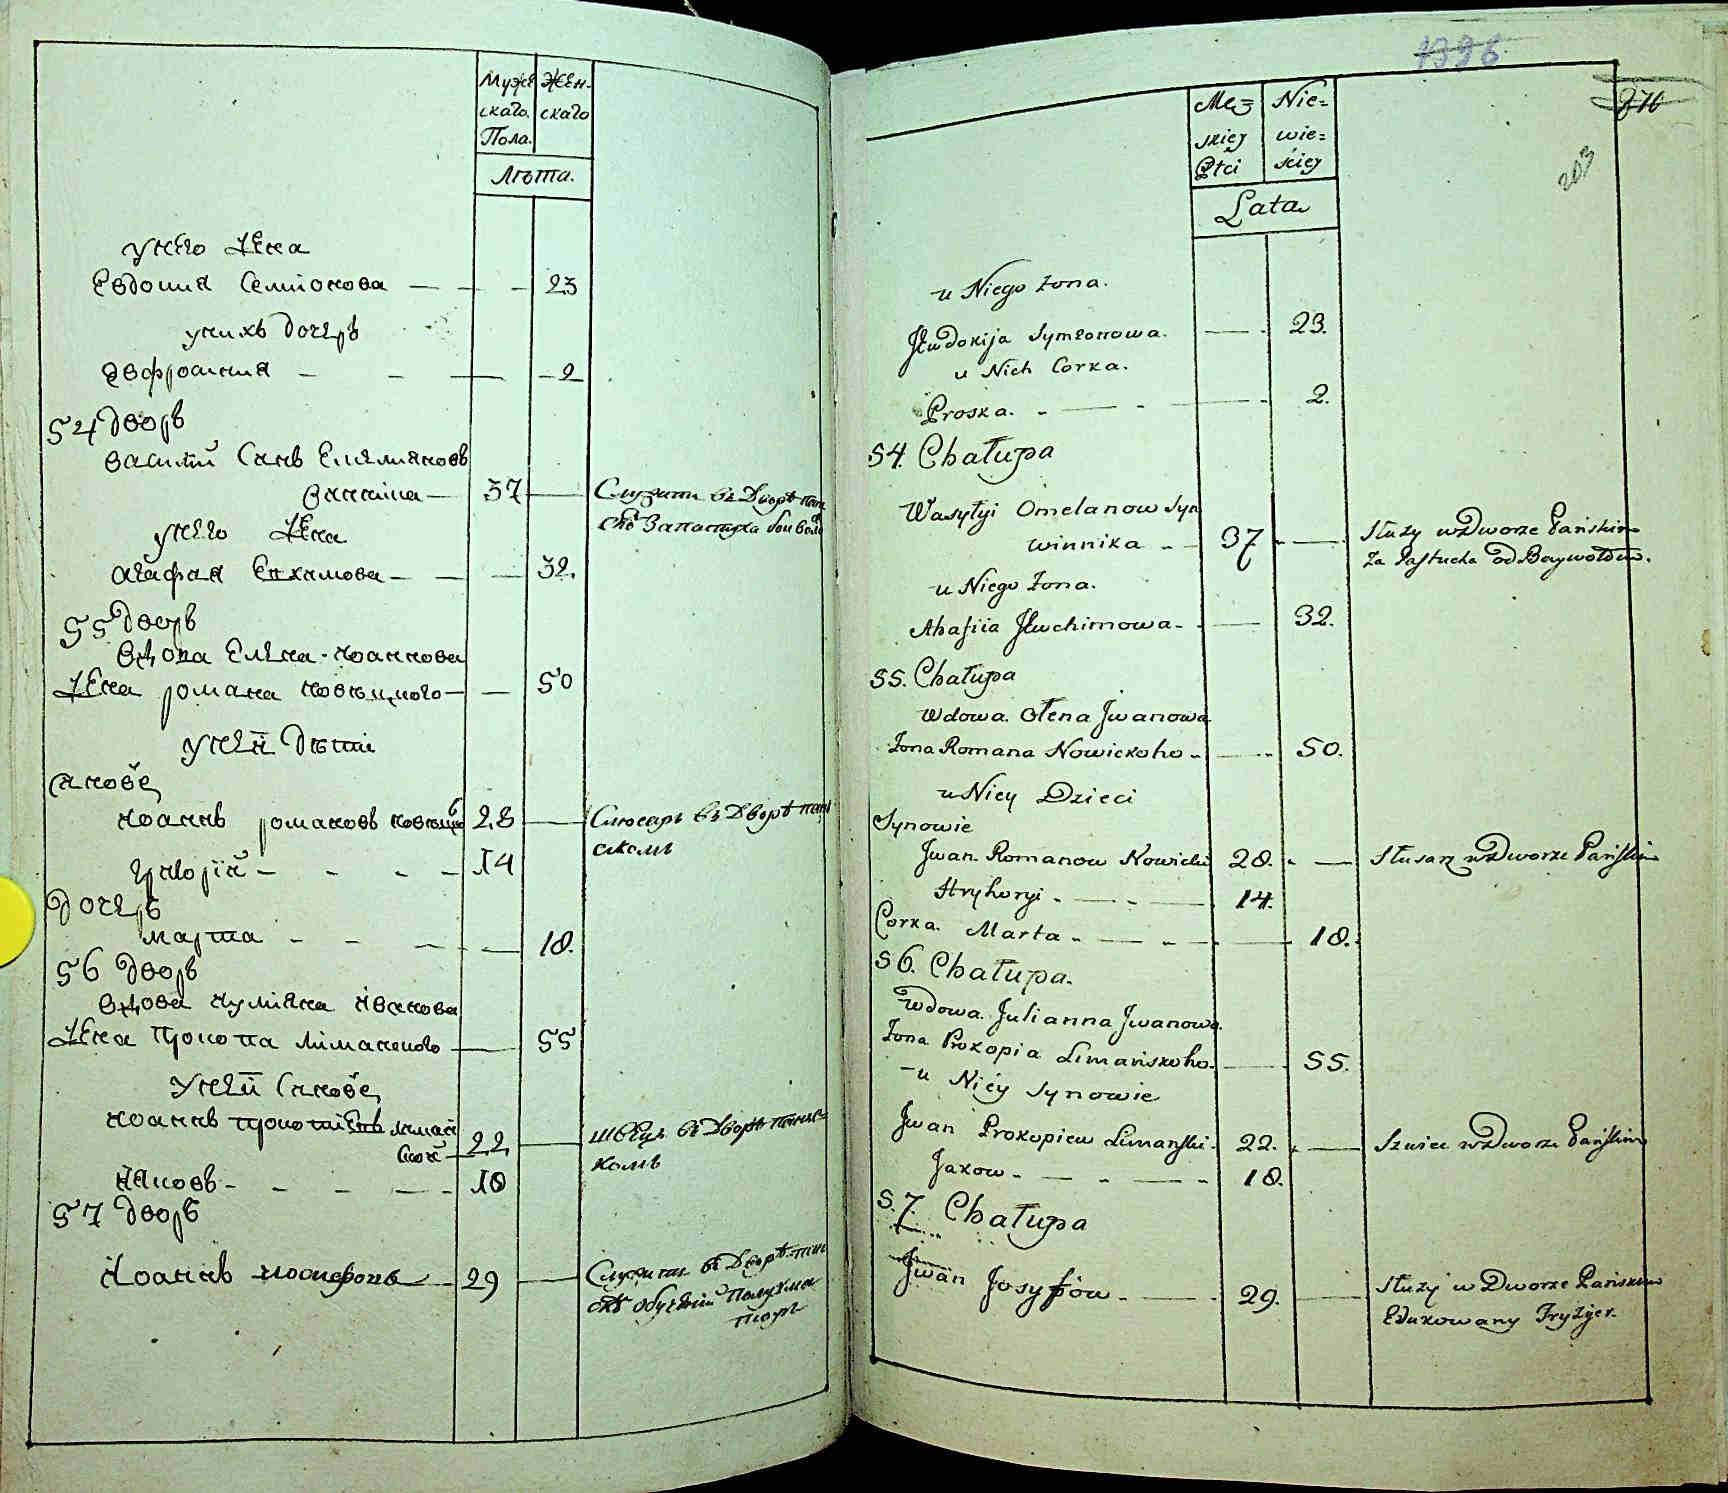 Муже
скаго
Пола.
Жен-
скаго
Лѣта.
унего жена
Евдокия Семионова — — - 23
унихъ дочеръ
Эвфросиния - - — - 2
54 дворъ
василий Синъ Емилияновъ
винника — 37 —
Служить въ Дворѣ пан
скѣ За пастуха
унего жена
агафия Ехимова — — — 32.
55 дворъ
вдова Елена Иоаннова
жена романа новѣцкого — — 50
унеи дѣти
синове
Иоаннъ романовъ новѣцкий 28 —
Слюсаръ въ Дворѣ пан
скомъ
григорий - - - - 14
дочеръ
марта - - - — 18.
56 дворъ
вдова иулияна ивановa
жена прокопа лиманского — 55
унеи Синове
Иоаннъ прокопиевъ лиман
ский — 22 —
швецъ въ Дворѣ панс-
комъ
яковъ - - - — - 18
57 дворъ
Иоаннъ иосифовъ — 29 —
Служить въ Дворѣ пан
скѣ обученый парукма
теоръ
1396
276
203
Mę=
skiej
Płci
Nie=
wie=
ściey
Lata
u Niego żona.
Jewdokija Symeonowa. — 23.
u Nich Corka.
Proska. - — - — - 2.
54. Chałupa
Wasylyi Omelanow Syn
winnika - - 37 - —
Służy w Dworze Pańskim
za Pastucha od Baywołow.
u Niego żona.
Ahafiia Jewchimowa - - — 32.
55. Chałupa
Wdowa Ołena Jwanowa
żona Romana Nowickoho - — - 50.
u Niey Dzieci
Synowie
Jwan Romanow Nowicki 28. - —
Slusarz w Dworze Pańskim
Hryhoryi - — - — 14.
Corka Marta - — - — - 18.
56. Chałupa.
Wdowa Julianna Jwanowa
żona Prokopia Limańskoho. — 55.
u Niéy Synowie
Jwan Prokopiew Limanski - 22. - —
Szwiec w Dworze Pańskim
Jakow - — - — - 18.
57. Chałupa
Jwan Josyfów - — - 29. —
Służy w Dworze Pańskim
Edukowany Fryzyer.